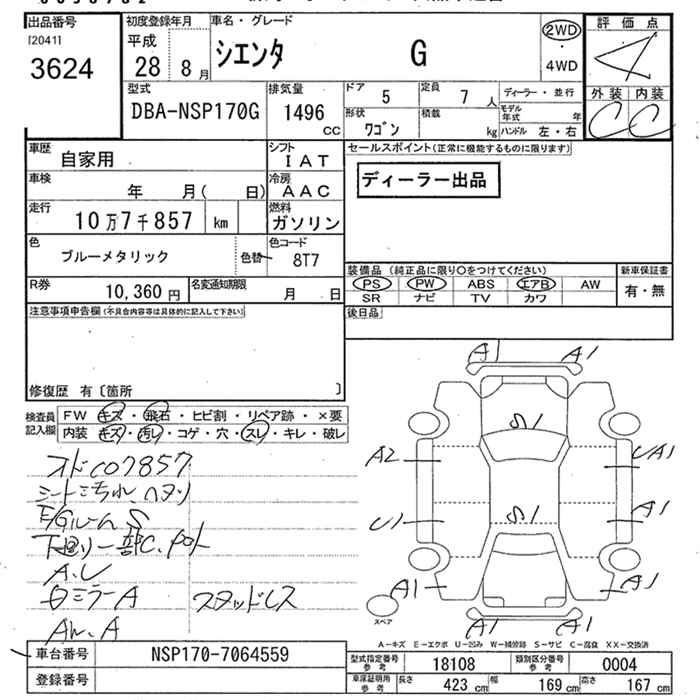 出品番号
[2041]
3624
初度登録年月
平成
28 8月
車名・グレード
シエンタ G
2WD
・
4WD
評価点
4
外装 内装
C C
型式
DBA-NSP170G
排気量
1496
CC
ドア 5
定員 7人
ディーラー・並行
形状 ワゴン
積載 kg
モデル年式 年
ハンドル 左・右
車歴
自家用
シフト
IAT
セールスポイント(正常に機能するものに限ります)
ディーラー出品
車検
年 月( 日)
冷房
AAC
走行
10万7千857 km
燃料
ガソリン
色
ブルーメタリック
色替
色コード
8T7
装備品 (純正品に限り○をつけてください)
新車保証書
PS PW ABS エアB AW
有・無
SR ナビ TV カワ
R券
10,360 円
名変通知期限
月 日
後日品
注意事項申告欄(不具合内容等は具体的に記入して下さい)
修復歴 有〔箇所 〕
検査員
記入欄
FW キズ・飛石・ヒビ割・リペア跡・×要
内装 キズ・汚レ・コゲ・穴・スレ・キレ・破レ
シート汚れ、ヘタリ
下回り一部C.
ミラーA
スタッドレス
A1 A1
S1
A2
UA1
S1
U1
A1
A1
A1
A1 A1
スペア
A-キズ E-エクボ U-凹み W-補修跡 S-サビ C-腐食 XX-交換済
車台番号
NSP170-7064559
型式指定番号
参考
18108
類別区分番号
参考
0004
登録番号
車庫証明用
参考
長さ 423 cm
幅 169 cm
高さ 167 cm